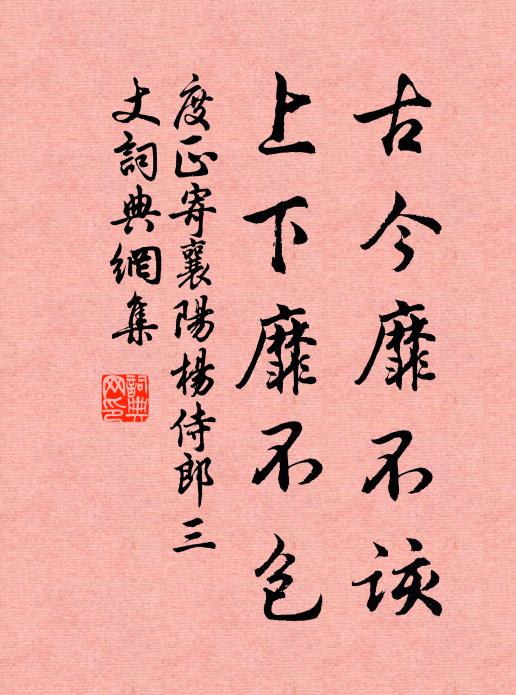 古今靡不該
上下靡不包
度正寄襄陽楊侍郎三
丈詞典網集
詞典
網印